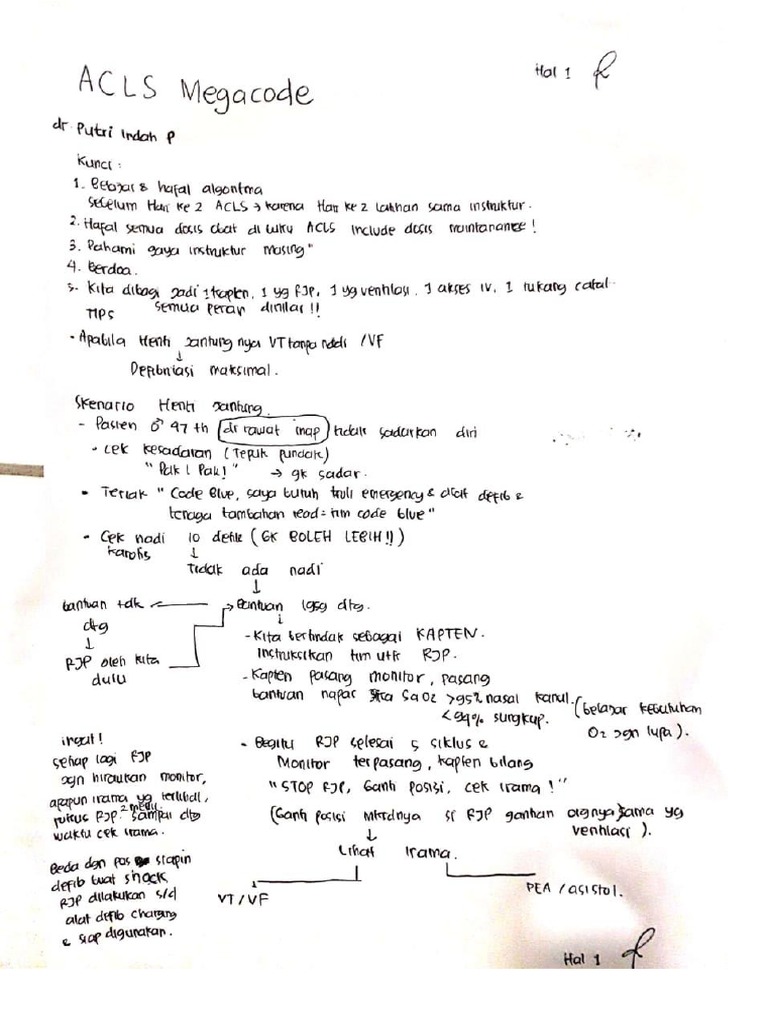 Hal 1
ACLS Megacode
dr Putri Indah P
Kunci :
1. Belajar & hafal algoritma
sebelum Hari ke 2 ACLS → karena Hari ke 2 latihan sama instruktur.
2. Hafal semua dosis obat di buku ACLS include dosis maintanance!
3. Pahami gaya instruktur masing"
4. Berdoa.
5. Kita dibagi jadi 1 kapten, 1 yg RJP, 1 yg ventilasi, 1 akses IV, 1 tukang catat
semua peran dinilai!!
TIPS
- Apabila Henti jantung nya VT tanpa nadi /VF
↓
Defibrilasi maksimal.
Skenario Henti jantung
- Pasien ♂ 47 th di rawat inap tidak sadarkan diri
- cek kesadaran (Tepuk pundak)
"Pak! Pak!" → gk sadar.
• Teriak "Code Blue, saya butuh troli emergency & alat defib &
tenaga tambahan read = tim code blue"
- Cek nadi 10 detik (GK BOLEH LEBIH!!)
karotis ↓
Tidak ada nadi
↓
bantuan tdk ← → Bantuan lgsg dtg.
dtg ↓
↓
RJP oleh kita
dulu
- Kita bertindak sebagai KAPTEN.
instruksikan tim utk RJP.
- Kapten pasang monitor, pasang
bantuan napas SaO2 >95% nasal kanul.
<94% sungkup.
(belajar kebutuhan
O2 jgn lupa).
- Begitu RJP selesai 5 siklus &
Monitor terpasang, kapten bilang
"STOP RJP, Ganti posisi, cek irama!"
(Ganti posisi mksdnya si RJP gantian orgnya sama yg
ventilasi).
↓
Lihat irama.
VT/VF
PEA / asistol.
ingat!
setiap lagi RJP
jgn hiraukan monitor,
apapun irama yg terlihat,
fokus RJP 2 menit sampai dtg
waktu cek irama.
Beda dgn pas siapin
defib buat shock,
RJP dilakukan s/d
alat defib charging
& siap digunakan.
Hal 1